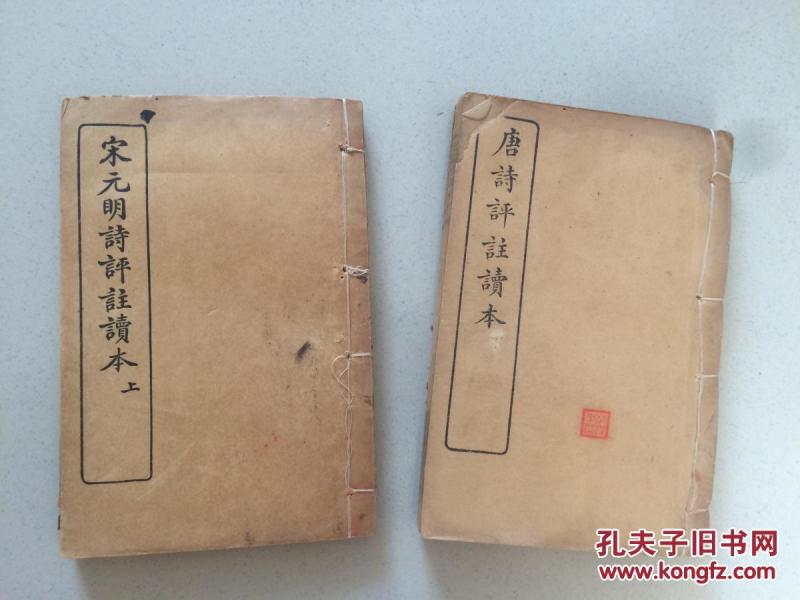 宋元明詩評註讀本 上
唐詩評註讀本
孔夫子旧书网
www.kongfz.com